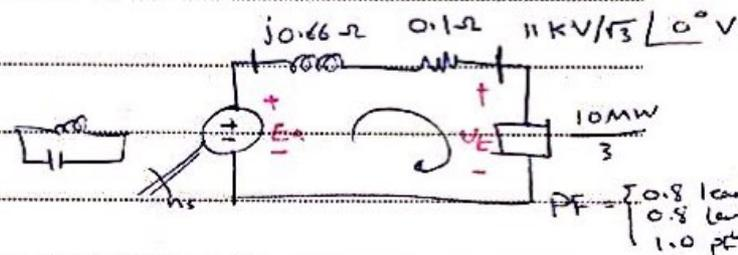 j0.66 Ω 0.1Ω 11 KV/√3 ∠0° V
+ +
+
-
EA VE
- -
10MW
3
ns
PF = { 0.8
0.8
1.0 PF